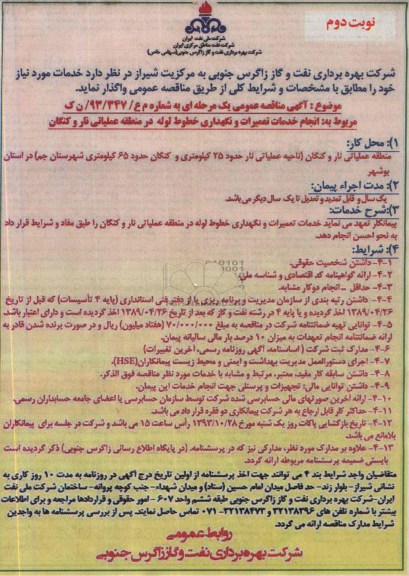 نوبت دوم
شرکت ملی نفت ایران
شرکت نفت مناطق مرکزی ایران
شرکت بهره برداری نفت و گاز زاگرس جنوبی (سهامی خاص)
شرکت بهره برداری نفت و گاز زاگرس جنوبی به مرکزیت شیراز در نظر دارد خدمات مورد نیاز
خود را مطابق با مشخصات و شرایط کلی از طریق مناقصه عمومی واگذار نماید.
موضوع : آگهی مناقصه عمومی یک مرحله ای به شماره م ع/ ۹۳/۳۴۷/ ن ک
مربوط به: انجام خدمات تعمیرات و نگهداری خطوط لوله در منطقه عملیاتی نار و کنگان
۱): محل کار:
منطقه عملیاتی نار و کنگان (ناحیه عملیاتی نار حدود ۲۵ کیلومتری و کنگان حدود ۶۵ کیلومتری شهرستان جم) در استان
بوشهر
۲): مدت اجراء پیمان:
یک سال و قابل تمدید و تعدیل تا یک سال دیگر می باشد.
۳): شرح خدمات:
پیمانکار تعهد می نماید خدمات تعمیرات و نگهداری خطوط لوله در منطقه عملیاتی نار و کنگان را طبق مفاد و شرایط قرار داد
به نحو احسن انجام دهد.
۴): شرایط:
۴-۱- داشتن شخصیت حقوقی.
۴-۲- ارائه گواهینامه کد اقتصادی و شناسه ملی.
۴-۳- حداقل ... انجام دو کار مشابه.
۴-۴- داشتن رتبه بندی از سازمان مدیریت و برنامه ریزی یا از دفتر فنی استانداری (پایه ۴ تأسیسات) که قبل از تاریخ
۱۳۸۹/۰۴/۲۶ اخذ گردیده و یا پایه ۴ در رشته نفت و گاز که بعد از تاریخ ۱۳۸۹/۰۴/۲۶ اخذ گردیده است و دارای اعتبار باشد.
۴-۵- توانایی تهیه ضمانتنامه شرکت در مناقصه به مبلغ ۷۰/۰۰۰/۰۰۰ (هفتاد میلیون) ریال و در صورت برنده شدن قادر به
ارائه ضمانتنامه انجام تعهدات به میزان ۱۰ درصد بار مالی سالیانه پیمان.
۴-۶- مدارک ثبت شرکت ( اساسنامه، آگهی روزنامه رسمی، آخرین تغییرات)
۴-۷- اجرای دستورالعمل مدیریت بهداشت و ایمنی و محیط زیست پیمانکاران(HSE).
۴-۸- داشتن سابقه کار مفید، معتبر، مرتبط و مشابه با خدمات مورد نظر مناقصه فوق الذکر.
۴-۹- داشتن توانایی مالی، تجهیزات و پرسنلی جهت انجام خدمات این پیمان.
۴-۱۰- ارائه آخرین صورتهای مالی حسابرسی شده شرکت توسط سازمان حسابرسی یا اعضای جامعه حسابداران رسمی.
۴-۱۱- حداکثر کار قابل ارجاع به هر شرکت پیمانکاری دو فقره قرار داد می باشد.
۴-۱۲- تاریخ بازگشایی پاکات روز یک شنبه مورخ ۱۳۹۳/۱۰/۲۸ رأس ساعت ۱۵ می باشد و شرکت در جلسه برای پیمانکاران
بلامانع می باشد.
۴-۱۳- علاوه بر مدارک مورد نظر، مدارکی نیز که در پرسشنامه، (در پایگاه اطلاع رسانی زاگرس جنوبی) ذکر گردیده است
بایستی ضمیمه پرسشنامه مربوطه ارائه گردد.
متقاضیان واجد شرایط بند ۴ می توانند جهت اخذ پرسشنامه از اولین تاریخ درج آگهی در روزنامه به مدت ۱۰ روز کاری به
نشانی شیراز- بلوار زند- حد فاصل میدان امام حسین (ستاد) و میدان شهداء- جنب کوچه پروانه- ساختمان شرکت ملی نفت
ایران-شرکت بهره برداری نفت و گاز زاگرس جنوبی طبقه ششم واحد ۶۰۷ - امور حقوقی و قراردادها مراجعه و برای اطلاعات
بیشتر با شماره تلفن های ۳۲۱۳۸۳۹۶ و ۳۲۱۳۸۴۷۳ -۰۷۱ تماس حاصل نمایند. پس از بررسی پرسشنامه ها به واجدین
شرایط مدارک مناقصه ارائه می گردد.
روابط عمومی
شرکت بهره برداری نفت و گاز زاگرس جنوبی